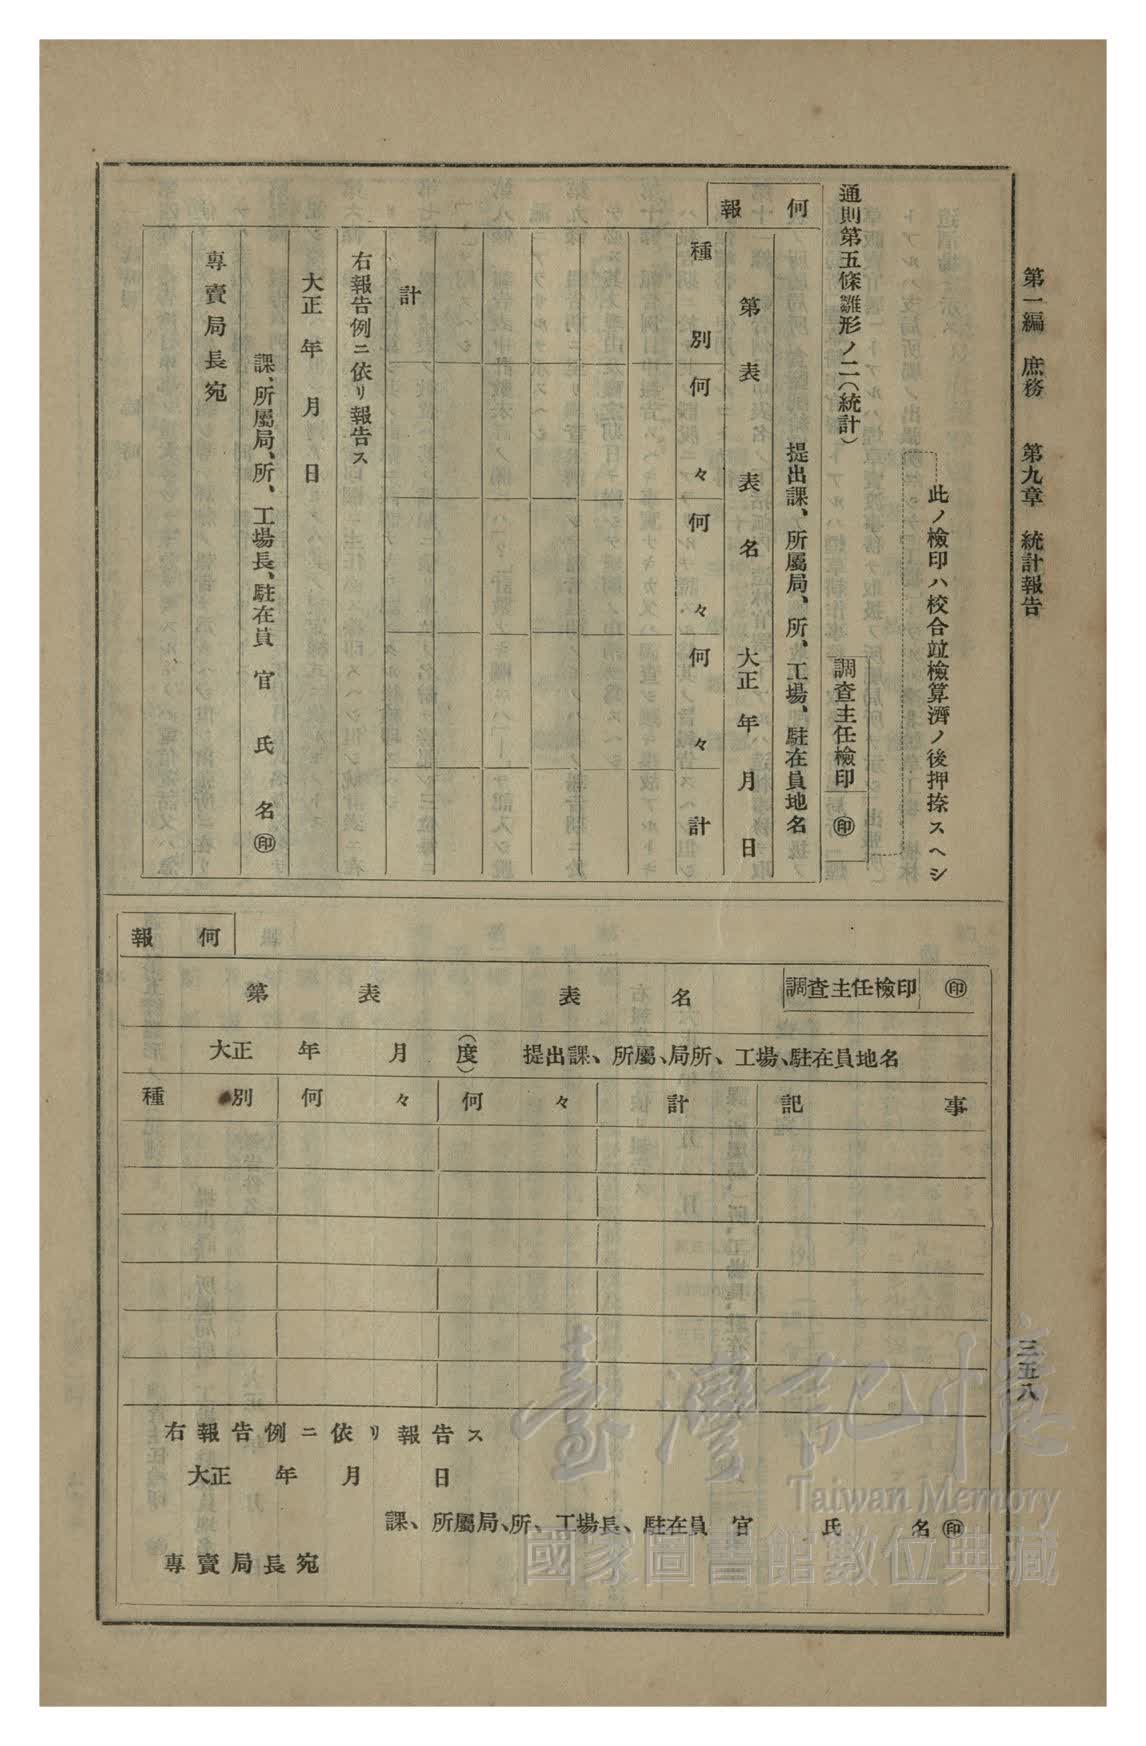 第一編　庶務　第九章　統計報告
三五八
此ノ檢印ハ校合竝檢算濟ノ後押捺スヘシ
通則第五條雛形ノ二（統計）
調査主任檢印　㊞
何報
提出課、所屬局、所、工場、駐在員地名
第　表　表名　大正　年　月　日
種別　何々　何々　何々　計
計
右報告例ニ依リ報告ス
大正　年　月　日
課、所屬局、所、工場長、駐在員　官　氏　名㊞
專賣局長宛
報　何
第　表　表　名　調査主任檢印　㊞
大正　年　月（度）　提出課、所屬、局所、工場、駐在員地名
種　別　何　々　何　々　計　記　事
右報告例ニ依リ報告ス
大正　年　月　日
課、所屬局、所、工場長、駐在員　官　氏　名㊞
專賣局長宛
臺灣記憶
Taiwan Memory
國家圖書館數位典藏